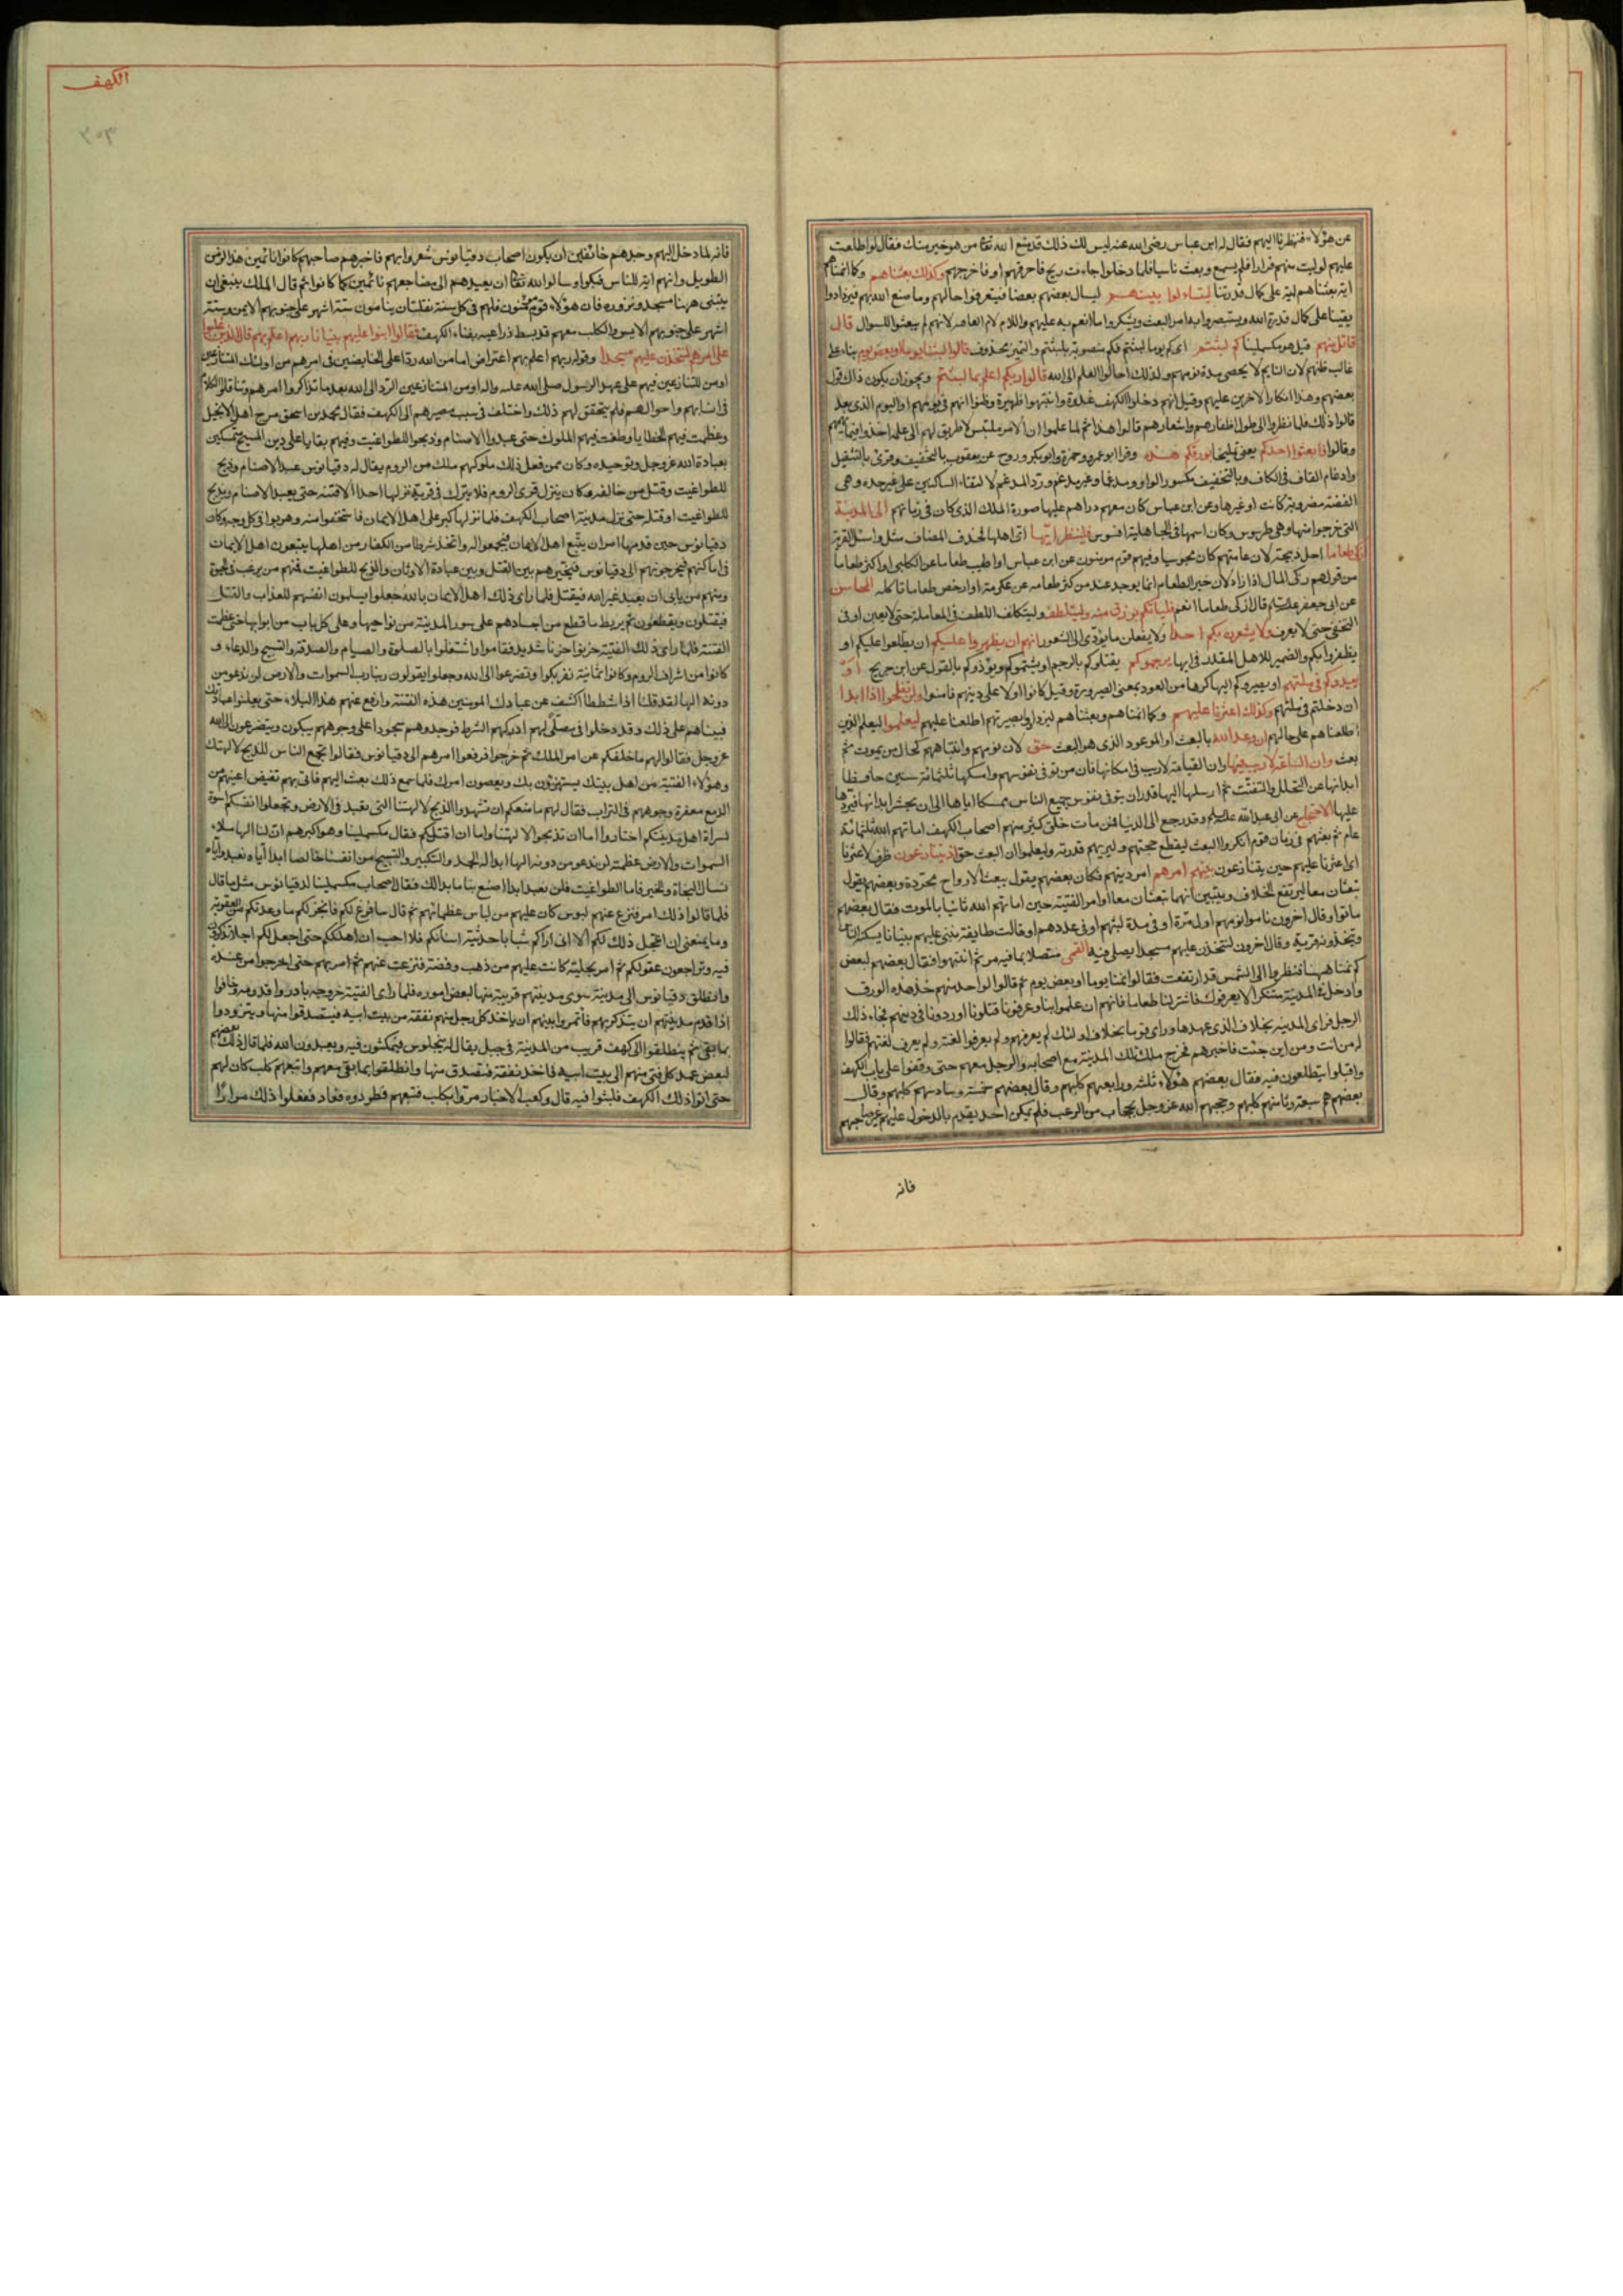 عن هؤلاء فنظرنا اليهم فقال له ابن عباس رضى الله عنه ليس لك ذلك قد منع الله تعا من هو خير منك فقال لو اطلعت
عليهم لوليت منهم فرارا فلم يسمع وبعث ناسا فلما دخلوا جاءت ريح فاحرقتهم او فاخرجتهم وكذلك بعثناهم وكما انمناهم
اية بعثناهم اية على كمال قدرتنا ليتساءلوا بينهم ليسال بعضهم بعضا فيتعرفوا حالهم وما صنع الله بهم فيزدادوا
يقينا على كمال قدرة الله ويستبصروا به امر البعث ويشكروا ما انعم به عليهم واللام لام العاقبة لانهم لم يبعثوا للسوال قال
قائل منهم قيل هو مكسلمينا كم لبثتم اى كم يوما لبثتم فكم منصوبة بلبثتم والتميز محذوف قالوا لبثنا يوما او بعض يوم بناء على
غالب ظنهم لان النايم لا يحصى مدة نومهم ولذلك احالوا العلم الى الله قالوا ربكم اعلم بما لبثتم ويجوز ان يكون ذلك قول
بعضهم وهذا انكار الاخرين عليهم وقيل انهم دخلوا الكهف غدوة وانتبهوا ظهيرة وظنوا انهم فى يومهم او اليوم الذى بعده
قالوا ذلك فلما نظروا الى طول اظفارهم واشعارهم قالوا هذا ثم لما علموا ان الامر ملتبس لا طريق لهم الى علمه اخذوا فيما يهمهم
وقالوا فابعثوا احدكم يعنى تمليخا بورقكم هذه وقرا ابو عمرو وحمزة وابو بكر وروح عن يعقوب بالتخفيف وقرئ بالتثقيل
وادغام القاف فى الكاف وبالتخفيف مكسور الواو ومدغما وغير مدغم ورد المدغم لالتقاء الساكنين على غير حده وهى
الفضة مضروبة كانت او غيرها وعن ابن عباس كان معهم دراهم عليها صورة الملك الذى كان فى زمانهم الى المدينة
التى خرجوا منها وهى طرسوس وكان اسمها فى الجاهلية افسوس فلينظر ايها اى اهلها بحذف المضاف مثل واسئل القرية
ازكى طعاما احل ذبيحة لان عامتهم كان مجوسيا وفيهم قوم مومنون عن ابن عباس او اطيب طعاما عن الكلبى او اكثر طعاما
من قولهم زكى المال اذا زاد لان خير الطعام انما يوجد عند من كثر طعامه عن عكرمة او ارخص طعاما تاكله المحاسن
عن ابى جعفر عليه السلم قال ازكى طعاما انعم فلياتكم برزق منه وليتلطف وليتكلف اللطف فى المعاملة حتى لا يغبن او فى
التخفى حتى لا يعرف ولا يشعرن بكم احدا ولا يفعلن ما يؤدى الى الشعور انهم ان يظهروا عليكم ان يطلعوا عليكم او
يظفروا بكم والضمير للاهل المقدر فى ايها يرجموكم يقتلوكم بالرجم او يشتموكم ويؤذوكم بالقول عن ابن جريج او
يعيدوكم فى ملتهم او يصيروكم اليها كرها من العود بمعنى الصيرورة وقيل كانوا اولا على دينهم فامنوا ولن تفلحوا اذا ابدا
ان دخلتم فى ملتهم وكذلك اعثرنا عليهم وكما انمناهم وبعثناهم ليزدادوا بصيرتهم اطلعنا عليهم ليعلموا ليعلم الذين
اطلعناهم على حالهم ان وعد الله بالبعث او الموعود الذى هو البعث حق لان نومهم وانتباههم كحال من يموت ثم
بعث وان الساعة لا ريب فيها وان القيامة لا ريب فى امكانها فان من توفى نفوسهم وامسكها ثلثمائة سنين حافظا
ابدانها عن التحلل والتفتت ثم ارسلها اليها قدر ان يتوفى نفوس جميع الناس ممسكا اياها الى ان يحشر ابدانها فيردها
عليها الاحتجاج عن ابى عبد الله عليه السلم وقد رجع الى الدنيا ممن مات خلق كثير منهم اصحاب الكهف اماتهم الله ثلثمائة
عام ثم بعثهم فى زمان قوم انكروا البعث ليقطع حجتهم وليريهم قدرته وليعلموا ان البعث حق اذ يتنازعون ظرف لاعثرنا
اى اعثرنا عليهم حين يتنازعون بينهم امرهم امر دينهم فكان بعضهم يقول يبعث الارواح مجردة وبعضهم يقول
تبعثان معا ليرتفع الخلاف ويتبين انهما تبعثان معا او امر الفتية حين اماتهم الله ثانيا بالموت فقال بعضهم
ماتوا وقال اخرون ناموا نومهم اول مرة او فى مدة لبثهم او فى عددهم او قالت طايفة نبنى عليهم بنيانا يسكنه الناس
وتتخذونه قرية وقال اخرون لنتخذن عليهم مسجدا يصلى فيه القمى متصلا بما فيه مر ثم انتبهوا فقال بعضهم لبعض
كم نمنا ههنا فنظروا الى الشمس قد ارتفعت فقالوا نمنا يوما او بعض يوم ثم قالوا لواحد منهم خذ هذه الورق
وادخل المدينة متنكرا لا يعرفوك فاشتر لنا طعاما فانهم ان علموا بنا وعرفونا قتلونا او ردونا فى دينهم فجاء ذلك
الرجل فراى المدينة بخلاف الذى عهدها وراى قوما بخلاف اولئك لم يعرفهم ولم يعرفوا لغته ولم يعرف لغتهم فقالوا
له من انت ومن اين جئت فاخبرهم فخرج ملك تلك المدينة مع اصحابه والرجل معهم حتى وقفوا على باب الكهف
واقبلوا يتطلعون فيه فقال بعضهم هؤلاء ثلثه ورابعهم كلبهم وقال بعضهم خمسة وسادسهم كلبهم وقال
بعضهم هم سبعة وثامنهم كلبهم وحجبهم الله عز وجل بحجاب من الرعب فلم يكن احد يقدم بالدخول عليهم غير صاحبهم
فانه
الكهف
٣٠٣
فانه لما دخل اليهم وجدهم خائفين ان يكون اصحاب دقيانوس شعروا بهم فاخبرهم صاحبهم كانوا نائمين هذا الزمن
الطويل وانهم اية للناس فبكوا وسالوا الله تعا ان يعيدهم الى مضاجعهم نائمين كما كانوا ثم قال الملك ينبغى ان
يبتنى ههنا مسجد ونزوره فان هؤلاء قوم مؤمنون فلهم فى كل سنة نقلتان ينامون ستة اشهر على جنوبهم الايمن وستة
اشهر على جنوبهم الايسر والكلب معهم قد بسط ذراعيه بفناء الكهف فقالوا ابنوا عليهم بنيانا ربهم اعلم بهم قال الذين غلبوا
على امرهم لنتخذن عليهم مسجدا وقوله ربهم اعلم بهم اعتراض اما من الله ردا على الخايضين فى امرهم من اولئك المتنازعين
او من المتنازعين فيهم على عهد الرسول صلى الله عليه واله او من المتنازعين الرد الى الله بعد ما تذاكروا امرهم وتناقلوا الكلام
فى انسابهم واحوالهم فلم يتحقق لهم ذلك واختلف فى سبب مصيرهم الى الكهف فقال محمد بن اسحق مرج اهل الانجيل
وعظمت فيهم الخطايا وطغت فيهم الملوك حتى عبدوا الاصنام وذبحوا للطواغيت وفيهم بقايا على دين المسيح متمسكين
بعبادة الله عز وجل وتوحيده وكان ممن فعل ذلك ملوكهم ملك من الروم يقال له دقيانوس عبد الاصنام وذبح
للطواغيت وقتل من خالفه وكان ينزل قرى الروم فلا يترك فى قرية نزلها احدا الا فتنه حتى يعبد الاصنام ويذبح
للطواغيت او قتله حتى نزل مدينة اصحاب الكهف فلما نزلها كبر على اهل الايمان فاستخفوا منه وهربوا فى كل وجه وكان
دقيانوس حين قدمها امر ان يتبع اهل الايمان فيجمعوا له واتخذ شرطا من الكفار من اهلها يتبعون اهل الايمان
فى اماكنهم فيخرجونهم الى دقيانوس فيخيرهم بين القتل وبين عبادة الاوثان والذبح للطواغيت فمنهم من يرغب فى الحيوة
ومنهم من يابى ان يعبد غير الله فيقتل فلما راى ذلك اهل الايمان بالله جعلوا يسلمون انفسهم للعذاب والقتل
فيقتلون ويقطعون ثم يربط ما قطع من اجسادهم على سور المدينة من نواحيها وعلى كل باب من ابوابها حتى عظمت
الفتنة فلما راى ذلك الفتية حزنوا حزنا شديدا فقاموا واشتغلوا بالصلوة والصيام والصدقة والتسبيح والدعاء و
كانوا من اشراف الروم وكانوا ثمانية نفر بكوا وتضرعوا الى الله وجعلوا يقولون ربنا رب السموات والارض لن ندعو من
دونه الها لقد قلنا اذا شططا اكشف عن عبادك المومنين هذه الفتنة وارفع عنهم هذا البلاء حتى يعلنوا عبادتك
فبيناهم على ذلك وقد دخلوا فى مصلى لهم ادركهم الشرط فوجدوهم سجودا على وجوههم يبكون ويتضرعون الى الله
عز وجل فقالوا لهم ما خلفكم عن امر الملك ثم خرجوا فرفعوا امرهم الى دقيانوس فقالوا تجمع الناس للذبح لالهتك
وهؤلاء الفتية من اهل بيتك يستهزؤن بك ويعصون امرك فلما سمع ذلك بعث اليهم فاتى بهم تفيض اعينهم من
الدمع معفرة وجوههم فى التراب فقال لهم ما منعكم ان تشهدوا الذبح لالهتنا التى تعبد فى الارض وتجعلوا انفسكم اسوة
لسراة اهل مدينتكم اختاروا اما ان تذبحوا لالهتنا واما ان اقتلكم فقال مكسلمينا وهو اكبرهم ان لنا الها ملاء
السموات والارض عظمته لن ندعو من دونه الها ابدا له الحمد والتكبير والتسبيح من انفسنا خالصا ابدا اياه نعبد واياه
نسال النجاة والخير فاما الطواغيت فلن نعبد ابدا اصنع بنا ما بدا لك فقال اصحاب مكسلمينا لدقيانوس مثل ما قال
فلما قالوا ذلك امر فنزع عنهم لبوس كان عليهم من لباس عظمائهم ثم قال سافرغ لكم فانجز لكم ما وعدتكم من العقوبة
وما يمنعنى ان اعجل ذلك لكم الا انى اراكم شبابا حديثة اسنانكم فلا احب ان اهلككم حتى اجعل لكم اجلا تذكرون
فيه وتراجعون عقولكم ثم امر بحلية كانت عليهم من ذهب وفضة فنزعت عنهم ثم امر بهم حتى اخرجوا من عنده
وانطلق دقيانوس الى مدينة سوى مدينتهم قريبة منها لبعض اموره فلما راى الفتية خروجه بادروا قدومه وخافوا
اذا قدم مدينتهم ان يتذكر بهم فاتمروا بينهم ان ياخذ كل رجل منهم نفقة من بيت ابيه فيتصدقوا منها ويتزودوا
بما بقى ثم ينطلقوا الى كهف قريب من المدينة فى جبل يقال له بنجلوس فيمكثون فيه ويعبدون الله فلما قال ذلك بعضهم
لبعض عمد كل فتى منهم الى بيت ابيه فاخذ نفقة فتصدق منها وانطلقوا بما بقى معهم واتبعهم كلب كان لهم
حتى اتوا ذلك الكهف فلبثوا فيه قال وكعب الاحبار مروا بكلب فتبعهم فطردوه فعاد ففعلوا ذلك مرارا